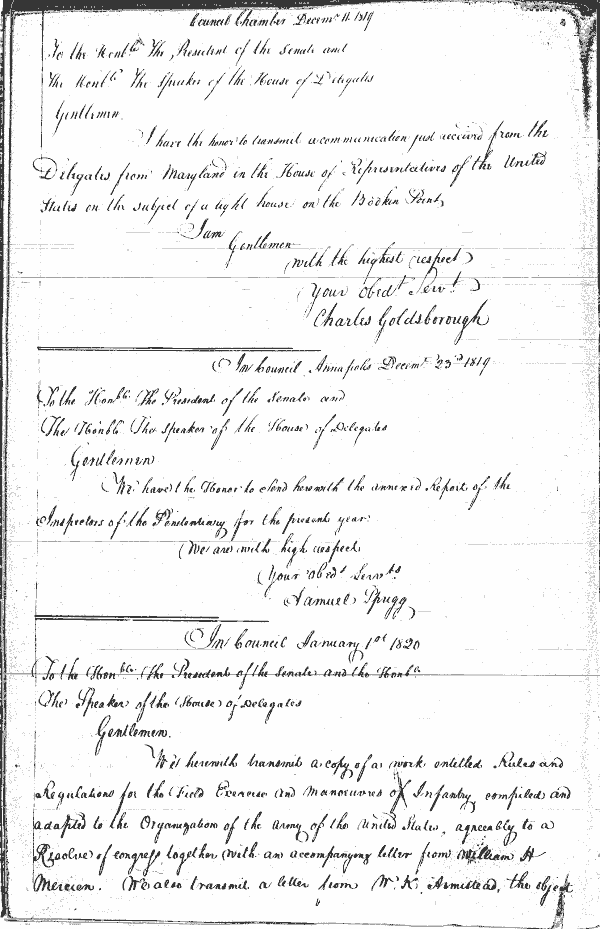 Council Chamber Decemr 11. 1819
To the Honble The President of the Senate and
The Honble The Speaker of the House of Delegates
Gentlemen.
I have the honor to transmit a communication just received from the
Delegates from Maryland in the House of Representatives of the United
States on the subject of a light house on the Bodkin Point,
I am
Gentlemen
with the highest respect
Your obedt Servt
Charles Goldsborough
In Council Annapolis Decemr 23rd 1819
To the Honble The President of the Senate and
The Honble The Speaker of the House of Delegates
Gentlemen
We have the Honor to Send herewith the annexed Report of the
Inspectors of the Penitentiary for the present year
We are with high respect
Your obedt Servts
Samuel Sprigg
In Council January 1st 1820
To the Honble The President of the Senate and the Honble
The Speaker of the House of Delegates
Gentlemen.
We herewith transmit a copy of a work entitled Rules and
Regulations for the Field Exercise and Manoeuvres of Infantry compiled and
adapted to the Organization of the army of the United States, agreeably to a
Resolve of congress together with an accompanying letter from William H
Mercien. We also transmit a letter from W. K. Armistead, the object